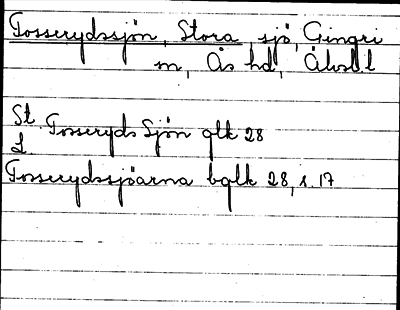 Tosserydssjön, Stora, sjö, Gingri
sn, Ås hd, Älvsb l
St. Tosseryds Sjön glk 28
L
Tosserydssjöarna bglk 28, s. 17